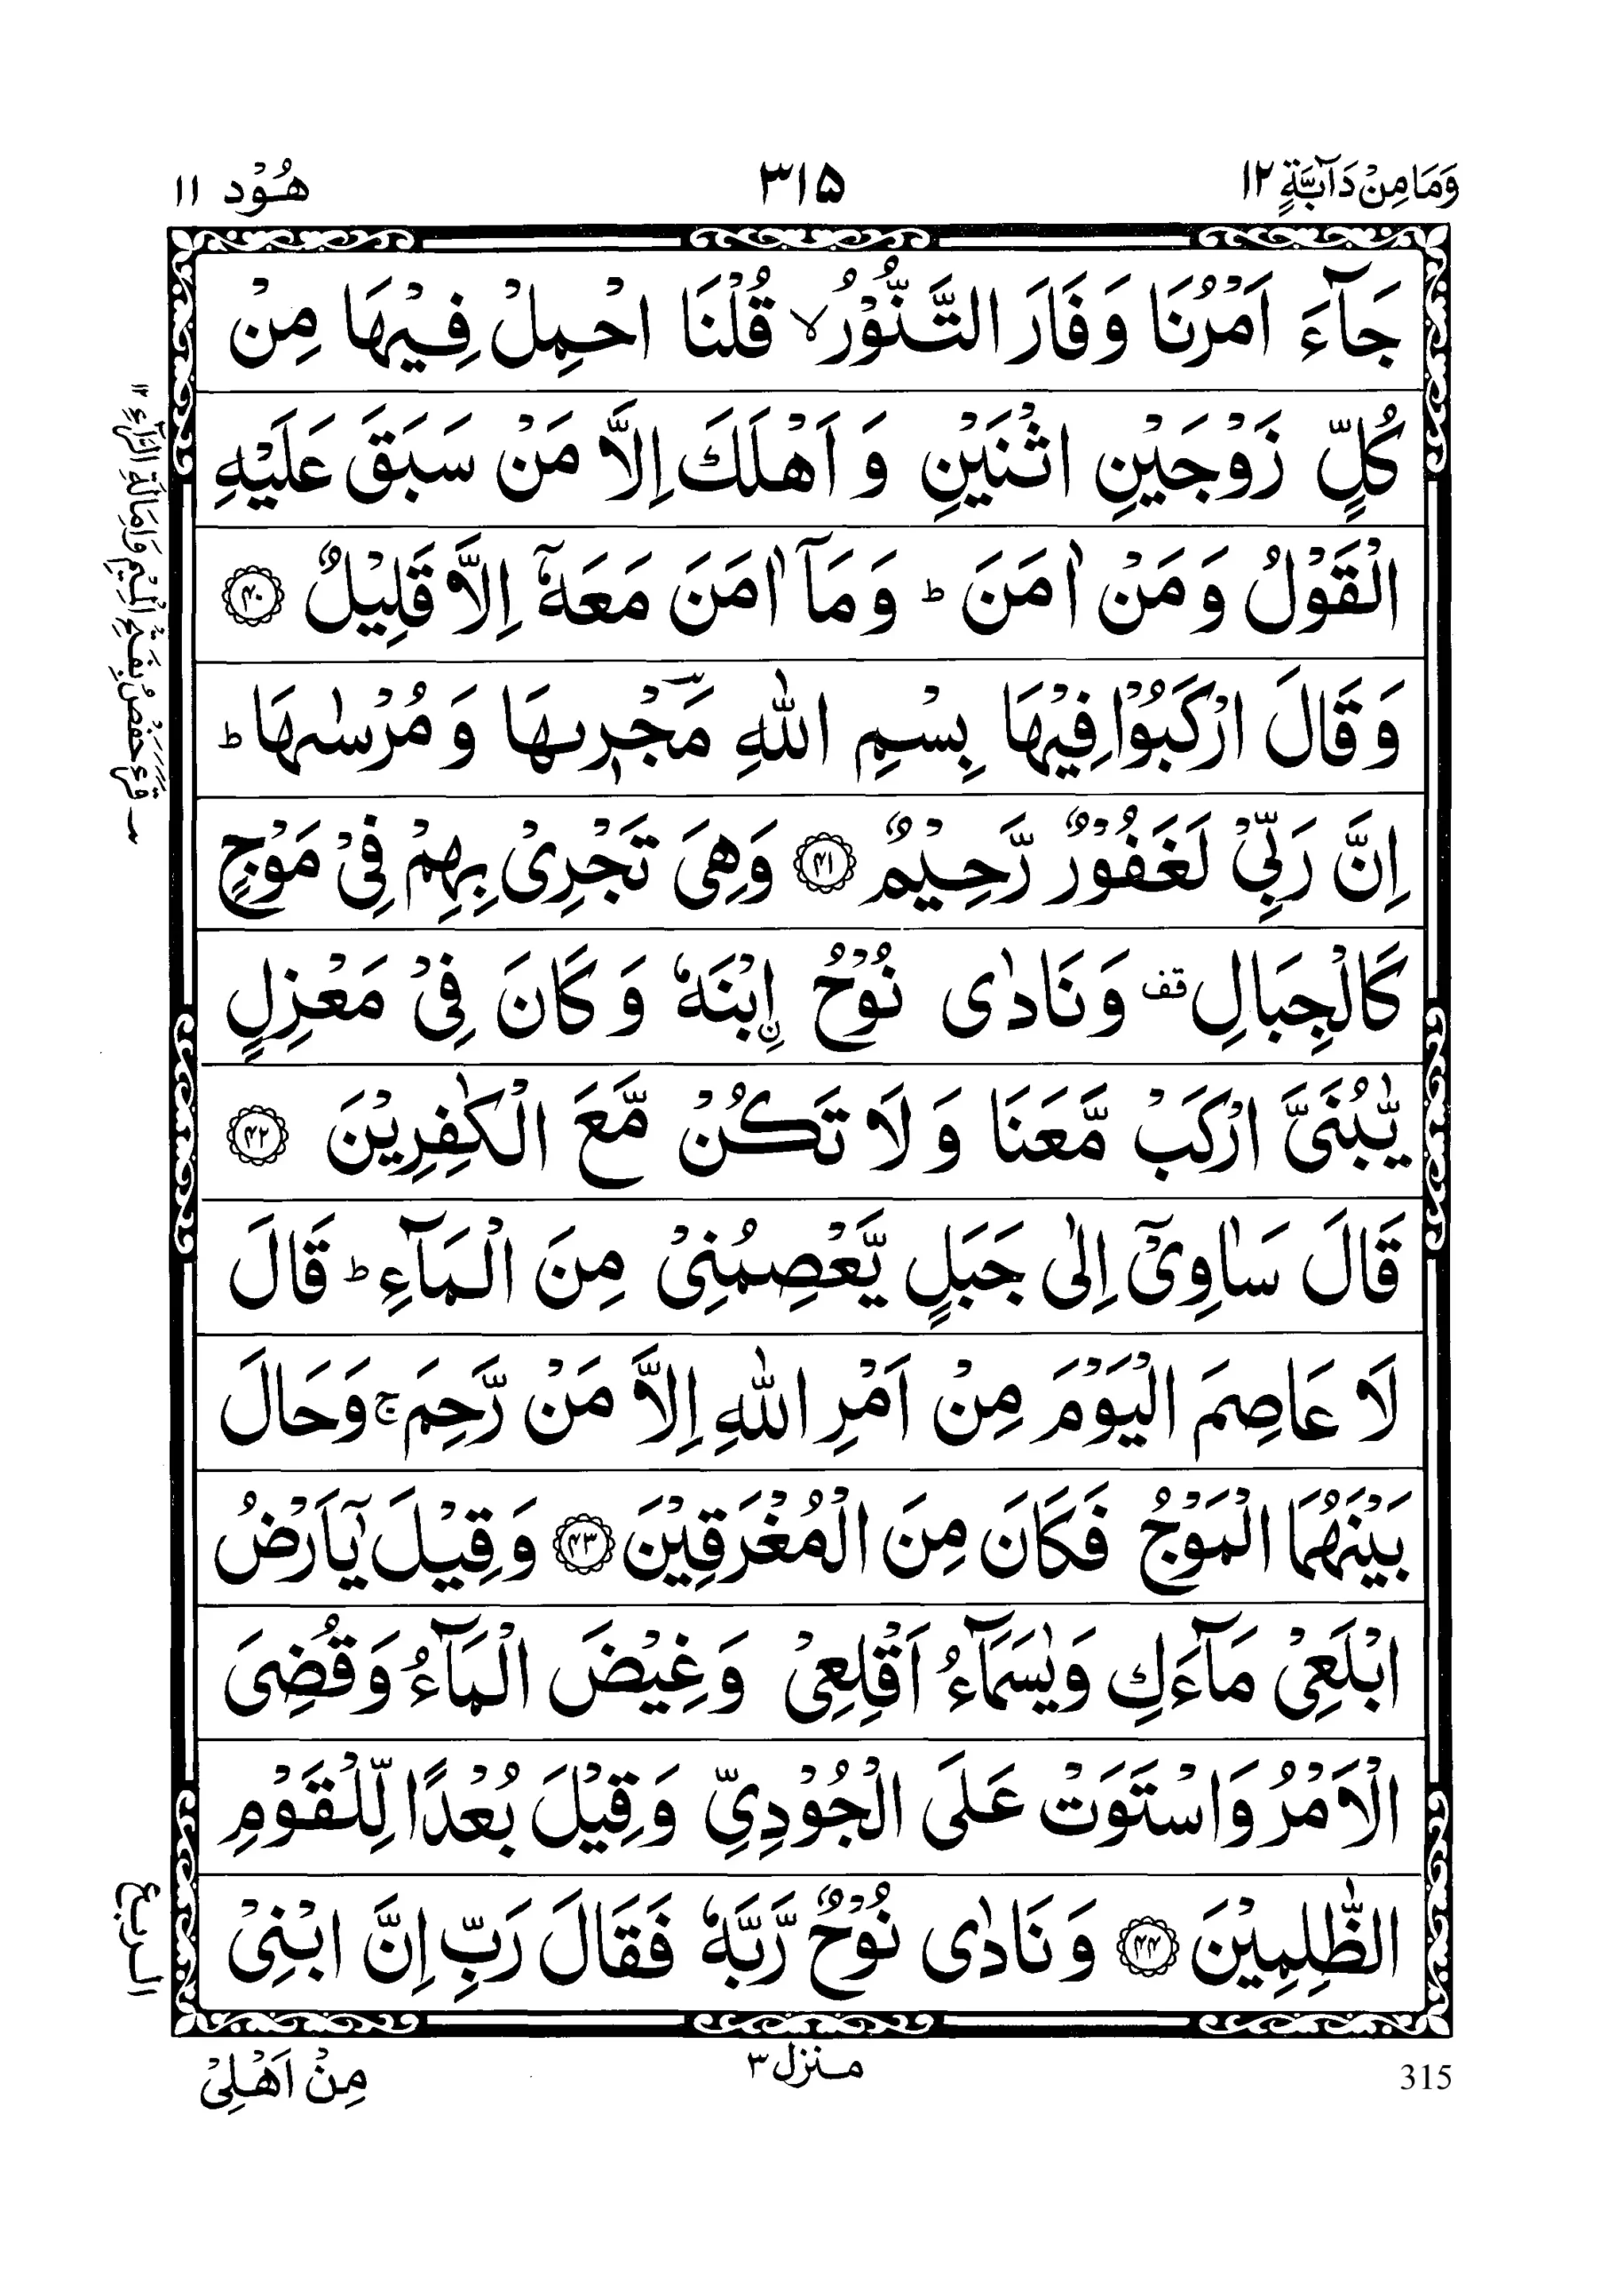 وَمَا مِنْ دَآبَّةٍ ١٢ ٣١٥ هُوْد ١١
جَآءَ اَمْرُنَا وَفَارَ التَّنُّوْرُ ۙ قُلْنَا احْمِلْ فِيْهَا مِنْ
كُلٍّ زَوْجَيْنِ اثْنَيْنِ وَ اَهْلَكَ اِلَّا مَنْ سَبَقَ عَلَيْهِ
الْقَوْلُ وَ مَنْ اٰمَنَ ؕ وَ مَآ اٰمَنَ مَعَهٗۤ اِلَّا قَلِيْلٌ ﴿۴۰﴾
وَ قَالَ ارْكَبُوْا فِيْهَا بِسْمِ اللّٰهِ مَجْؔرٖىهَا وَ مُرْسٰىهَا ؕ
اِنَّ رَبِّيْ لَغَفُوْرٌ رَّحِيْمٌ ﴿۴۱﴾ وَهِيَ تَجْرِيْ بِهِمْ فِيْ مَوْجٍ
كَالْجِبَالِ قف وَ نَادٰى نُوْحُ اۨبْنَهٗ وَ كَانَ فِيْ مَعْزِلٍ
يّٰبُنَيَّ ارْكَبْ مَّعَنَا وَ لَا تَكُنْ مَّعَ الْكٰفِرِيْنَ ﴿۴۲﴾
قَالَ سَاٰوِيْۤ اِلٰى جَبَلٍ يَّعْصِمُنِيْ مِنَ الْمَآءِ ؕ قَالَ
لَا عَاصِمَ الْيَوْمَ مِنْ اَمْرِ اللّٰهِ اِلَّا مَنْ رَّحِمَ ۚ وَحَالَ
بَيْنَهُمَا الْمَوْجُ فَكَانَ مِنَ الْمُغْرَقِيْنَ ﴿۴۳﴾ وَ قِيْلَ يٰۤاَرْضُ
ابْلَعِيْ مَآءَكِ وَيٰسَمَآءُ اَقْلِعِيْ وَغِيْضَ الْمَآءُ وَقُضِيَ
الْاَمْرُ وَاسْتَوَتْ عَلَى الْجُوْدِيِّ وَقِيْلَ بُعْدًا لِّلْقَوْمِ
الظّٰلِمِيْنَ ﴿۴۴﴾ وَ نَادٰى نُوْحٌ رَّبَّهٗ فَقَالَ رَبِّ اِنَّ ابْنِيْ
مِنْ اَهْلِيْ
منزل ٣
315
قرء حفص بفتح الميم وامالة الراء ١٢
الربع